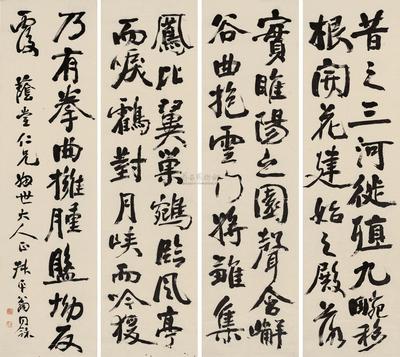 昔之三河徙殖九畹移
根開花建始之殿落
實睢陽之園聲含嶰
谷曲抱雲門將雛集
鳳比翼巢鵷臨風亭
而唳鶴對月峽而吟猨
乃有拳曲擁腫盤坳反
覆 蔭堂仁兄世大人正 叔平翁同龢